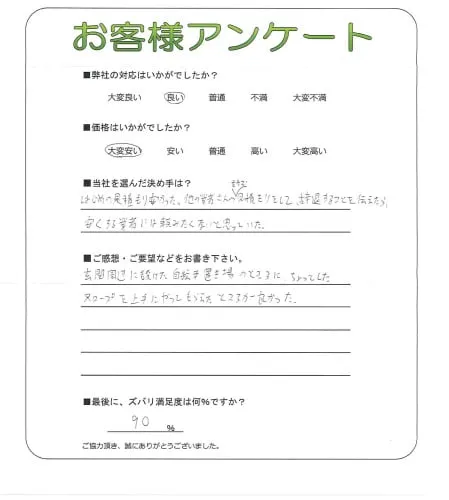 お客様アンケート
■弊社の対応はいかがでしたか？
大変良い 良い 普通 不満 大変不満
■価格はいかがでしたか？
大変安い 安い 普通 高い 大変高い
■当社を選んだ決め手は？
はじめの見積もり安かった。他の業者さんの見積もりをして、辞退することを伝えたら、
安くする業者には頼みたくないと思っていた。
■ご感想・ご要望などをお書き下さい。
玄関周辺に設けた自転車置き場のところに、ちょっとした
スロープを上手にやってもらえたところが良かった。
■最後に、ズバリ満足度は何％ですか？
90 ％
ご協力頂き、誠にありがとうございました。